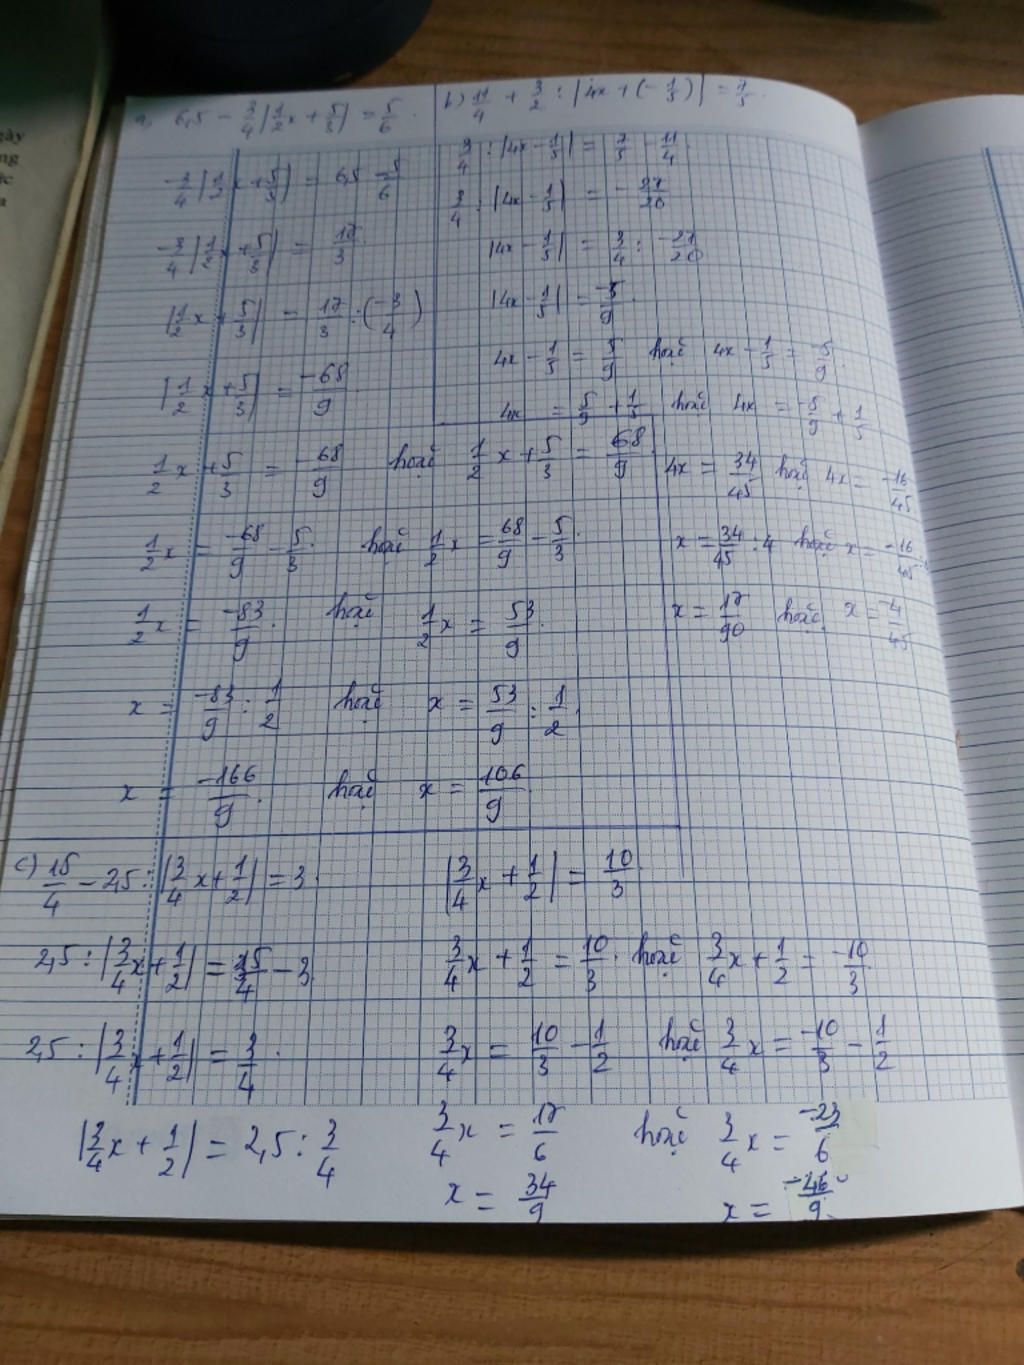 a, 6,5 - 3/4 |1/2 x + 5/3| = 5/6
-3/4 |1/2 x + 5/3| = 6,5 - 5/6
-3/4 |1/2 x + 5/3| = 17/3
|1/2 x + 5/3| = 17/3 : (-3/4)
|1/2 x + 5/3| = -68/9
1/2 x + 5/3 = -68/9 hoặc 1/2 x + 5/3 = 68/9
1/2 x = -68/9 - 5/3 hoặc 1/2 x = 68/9 - 5/3
1/2 x = -83/9 hoặc 1/2 x = 53/9
x = -83/9 : 1/2 hoặc x = 53/9 : 1/2
x = -166/9 hoặc x = 106/9
b) 11/4 + 3/2 : |4x + (-1/5)| = 7/5
3/4 : |4x - 1/5| = 7/5 - 11/4
3/4 : |4x - 1/5| = -27/20
|4x - 1/5| = 3/4 : -27/20
|4x - 1/5| = -5/9
4x - 1/5 = 5/9 hoặc 4x - 1/5 = -5/9
4x = 5/9 + 1/5 hoặc 4x = -5/9 + 1/5
4x = 34/45 hoặc 4x = -16/45
x = 34/45 : 4 hoặc x = -16/45
x = 17/90 hoặc x = -4/45
c) 15/4 - 2,5 : |3/4 x + 1/2| = 3
2,5 : |3/4 x + 1/2| = 15/4 - 3
2,5 : |3/4 x + 1/2| = 3/4
|3/4 x + 1/2| = 2,5 : 3/4
|3/4 x + 1/2| = 10/3
3/4 x + 1/2 = 10/3 hoặc 3/4 x + 1/2 = -10/3
3/4 x = 10/3 - 1/2 hoặc 3/4 x = -10/3 - 1/2
3/4 x = 17/6 hoặc 3/4 x = -23/6
x = 34/9 x = -46/9